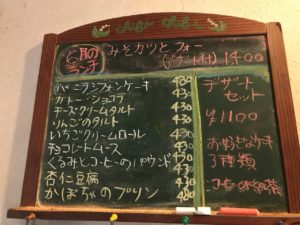 月の
ランチ
みそカツとフォー
(デザート付) 1400
バニラシフォンケーキ 430
ガトーショコラ 430
チーズクリームタルト 430
りんごのタルト 430
いちごクリームロール 430
チョコレートムース 430
くるみとコーヒーのパウンド 430
杏仁豆腐 430
かぼちゃのプリン 480
デザート
セット
¥1100
お好きなケーキ
3種類